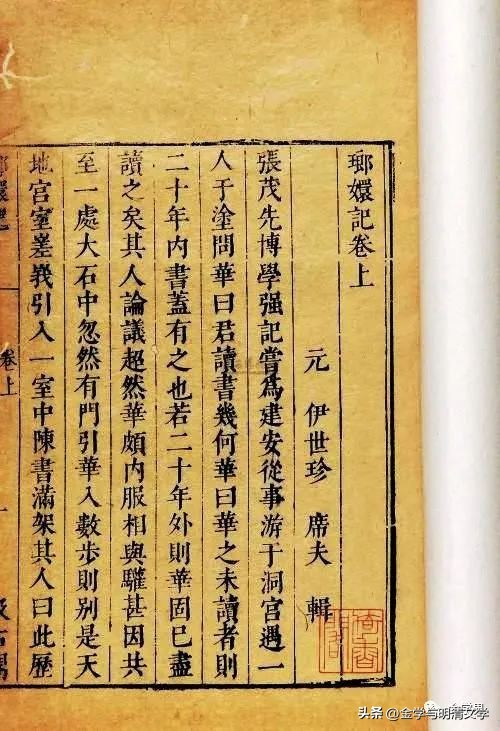 瑯嬛記卷上
元 伊世珍 席夫 輯
張茂先博學强記嘗爲建安從事游于洞宮遇一
人于塗問華曰君讀書幾何華曰華之未讀者則
二十年内書蓋有之也若二十年外則華固已盡
讀之矣其人論議超然華頗内服相與驩甚因共
至一處大石中忽然有門引華入數步則别是天
地宫室嵳峩引入一室中陳書滿架其人曰此歷
卷上
头条 @金学与明清文学